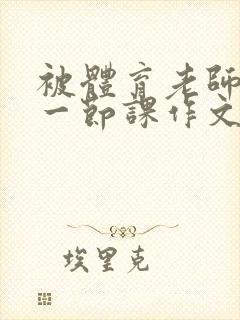 被體育老師
一節課作文
埃里克